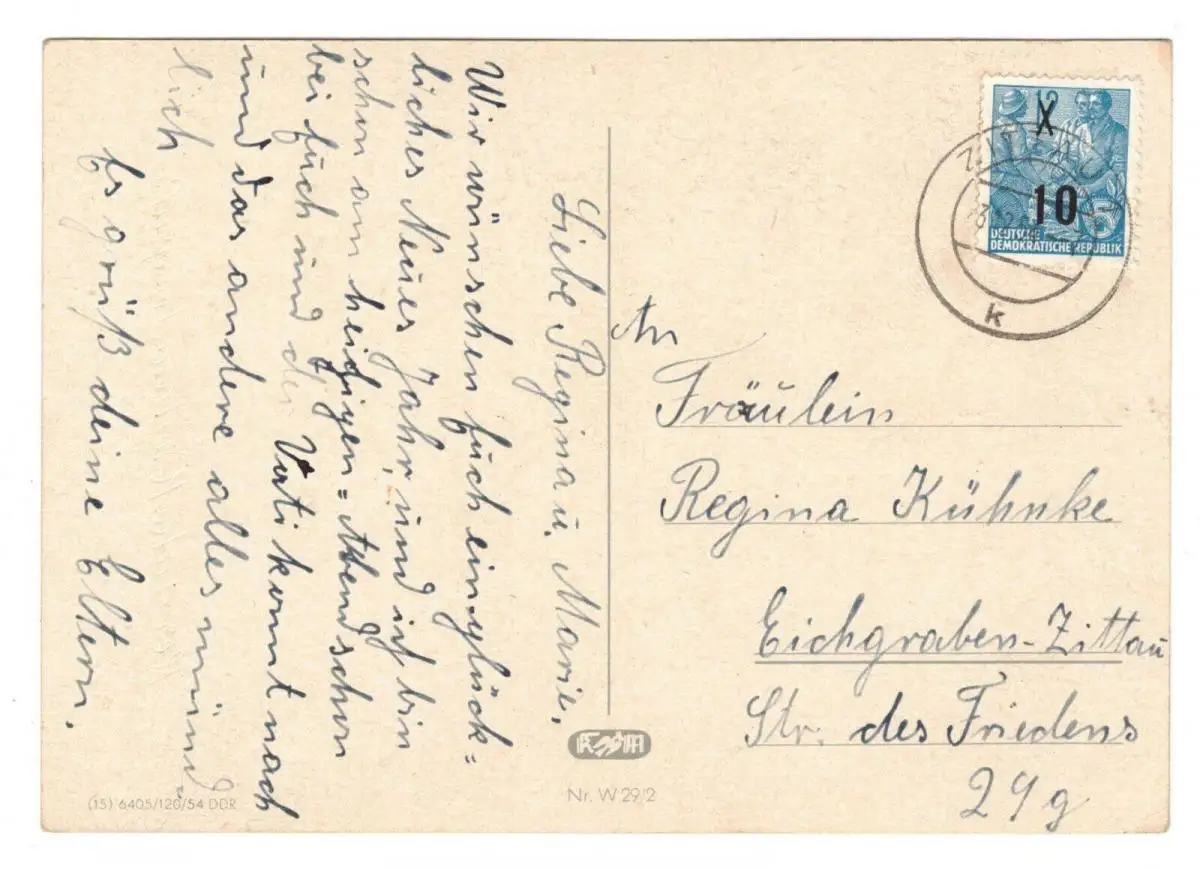 Liebe Regina u. Marie.
Wir wünschen Euch ein glück=
liches Neues Jahr, und ich bin
schon am heiligen=Abend schon
bei Euch und der Vati kommt nach
und das andere alles münd
lich
Es grüß deine Eltern.
12
10
5
DEUTSCHE
DEMOKRATISCHE REPUBLIK
k
An
Fräulein
Regina Kühnke
Eichgraben-Zittau
Str. des Friedens
29g
(15) 6405/120/54 DDR
Nr. W 29/2